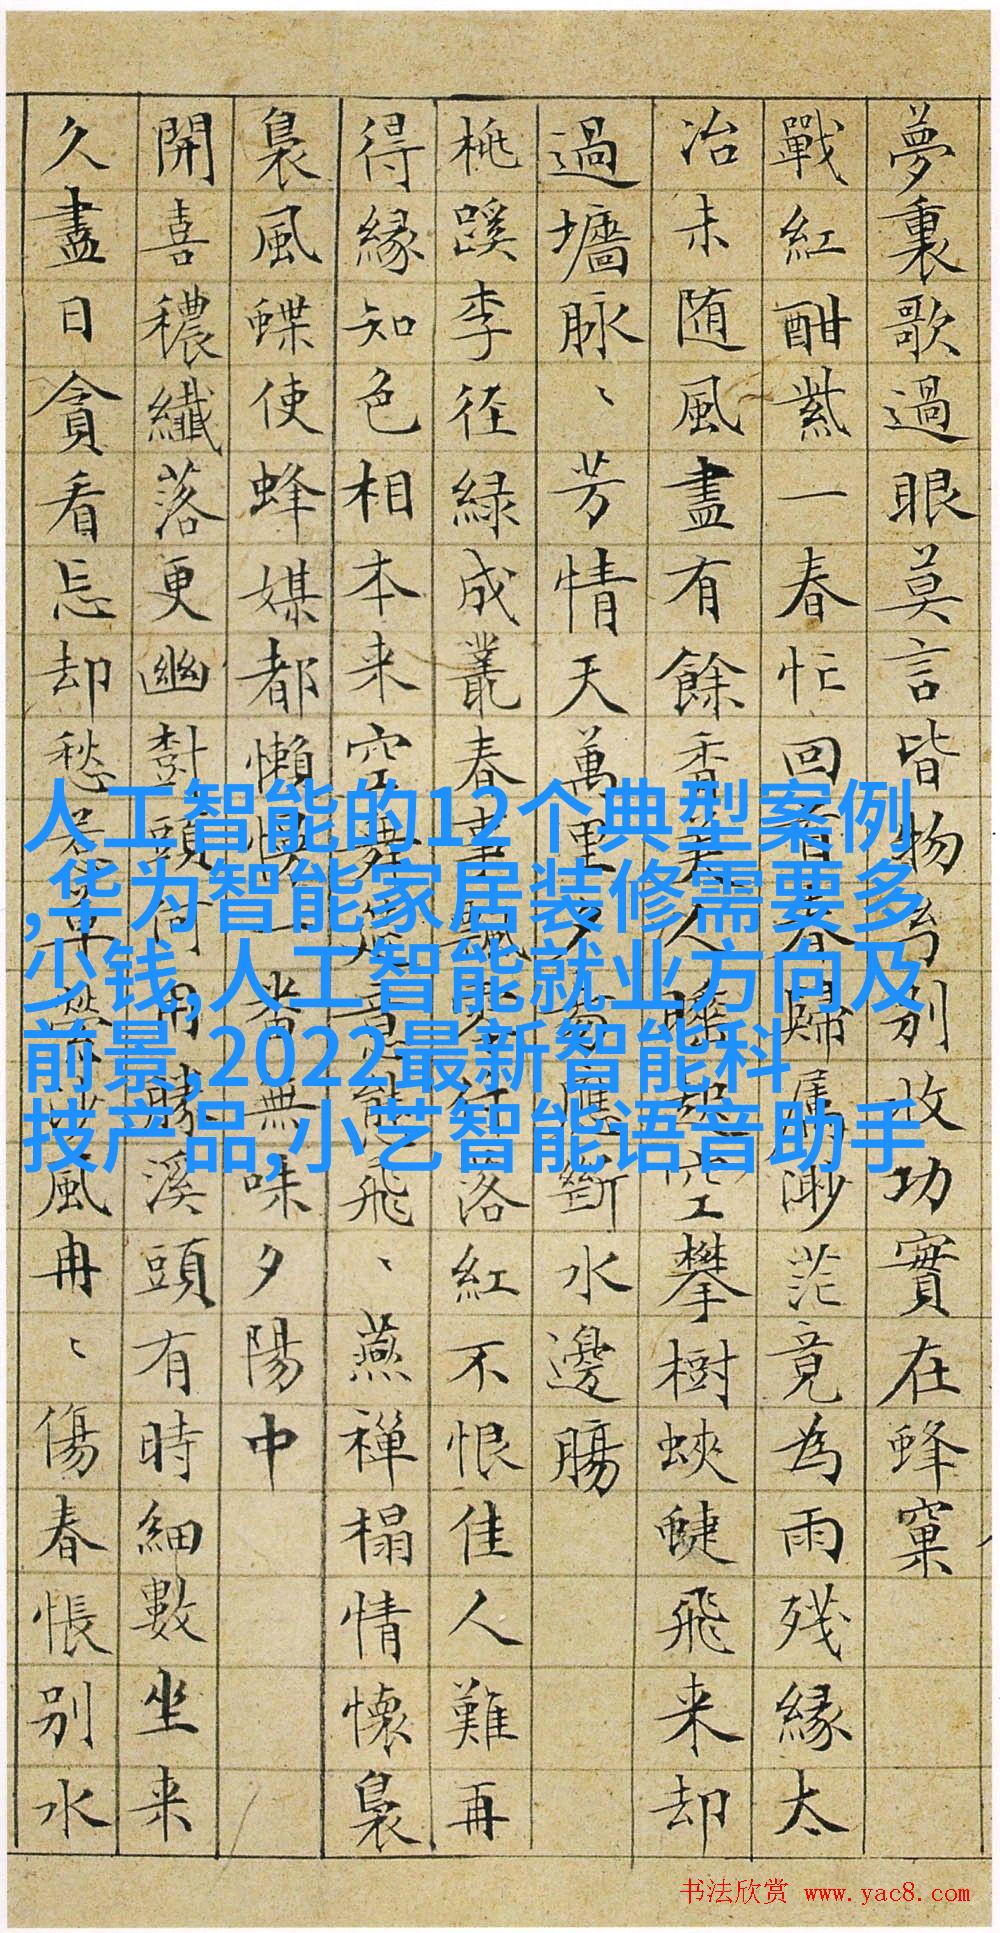 夢裏歌過眼莫言皆物為别收功實在蜂窠
戰紅酣紫一春忙回首春歸屬渺茫竟為雨殘緣太
冶未随風盡有餘香美人睡起空攀樹蛺蜨飛来却
過墻脉、芳情天萬里夕陽應斷水邊腸
桃蹊李径緑成叢春事飄零付落紅不恨佳人難再
得緣知色相本来空舞筵意態飛、燕禅榻情懷裊
裊風蝶使蜂媒都懶慢一番無味夕陽中
開喜穠纖落更幽對頭何用勝溪頭有時細數坐来
久盡日貪看忘却愁 風冉、傷春悵别水
人工智能的12个典型案例
,华为智能家居装修需要多
少钱,人工智能就业方向及
前景,2022最新智能科
技产品,小艺智能语音助手
书法欣赏 www.yac8.com